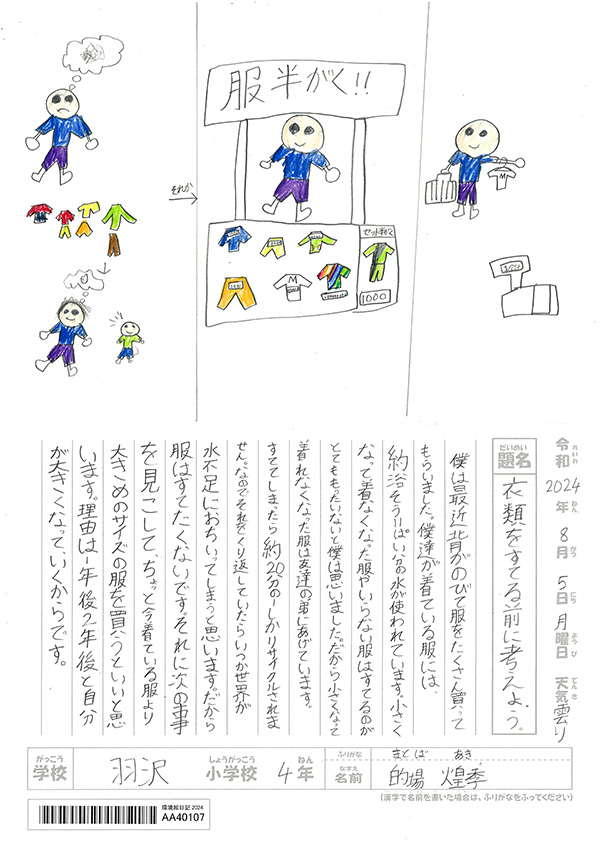 服半がく!!
それから
セット半がく
M
1000
M
令和2024年8月5日月曜日 天気曇り
れいわ ねん がつ にち ようび てんき
だいめい
題名
衣類をすてる前に考えよう。
僕は最近背がのびて服をたくさん買って
もらいました。僕達が着ている服には、
約浴そう11ぱい分の水が使われています。小さく
なって着なくなった服やいらない服はすてるのが
とてももったいないと僕は思いました。だから小さくなって
着れなくなった服は友達の弟にあげています。
すててしまったら約20分の1しかリサイクルされま
せん。なのでそれをくり返していたらいつか世界が
水不足におちいってしまうと思います。だから
服はすてたくないです。それに次の事
を見こして、ちょっと今着ている服より
大きめのサイズの服を買うといいと思
います。理由は1年後2年後と自分
が大きくなって、いくからです。
がっこう しょうがっこう ねん ふりがな まとば あき
学校 羽沢 小学校 4年 なまえ 名前 的場 煌季
(漢字で名前を書いた場合は、ふりがなをふってください)
環境絵日記2024
AA40107